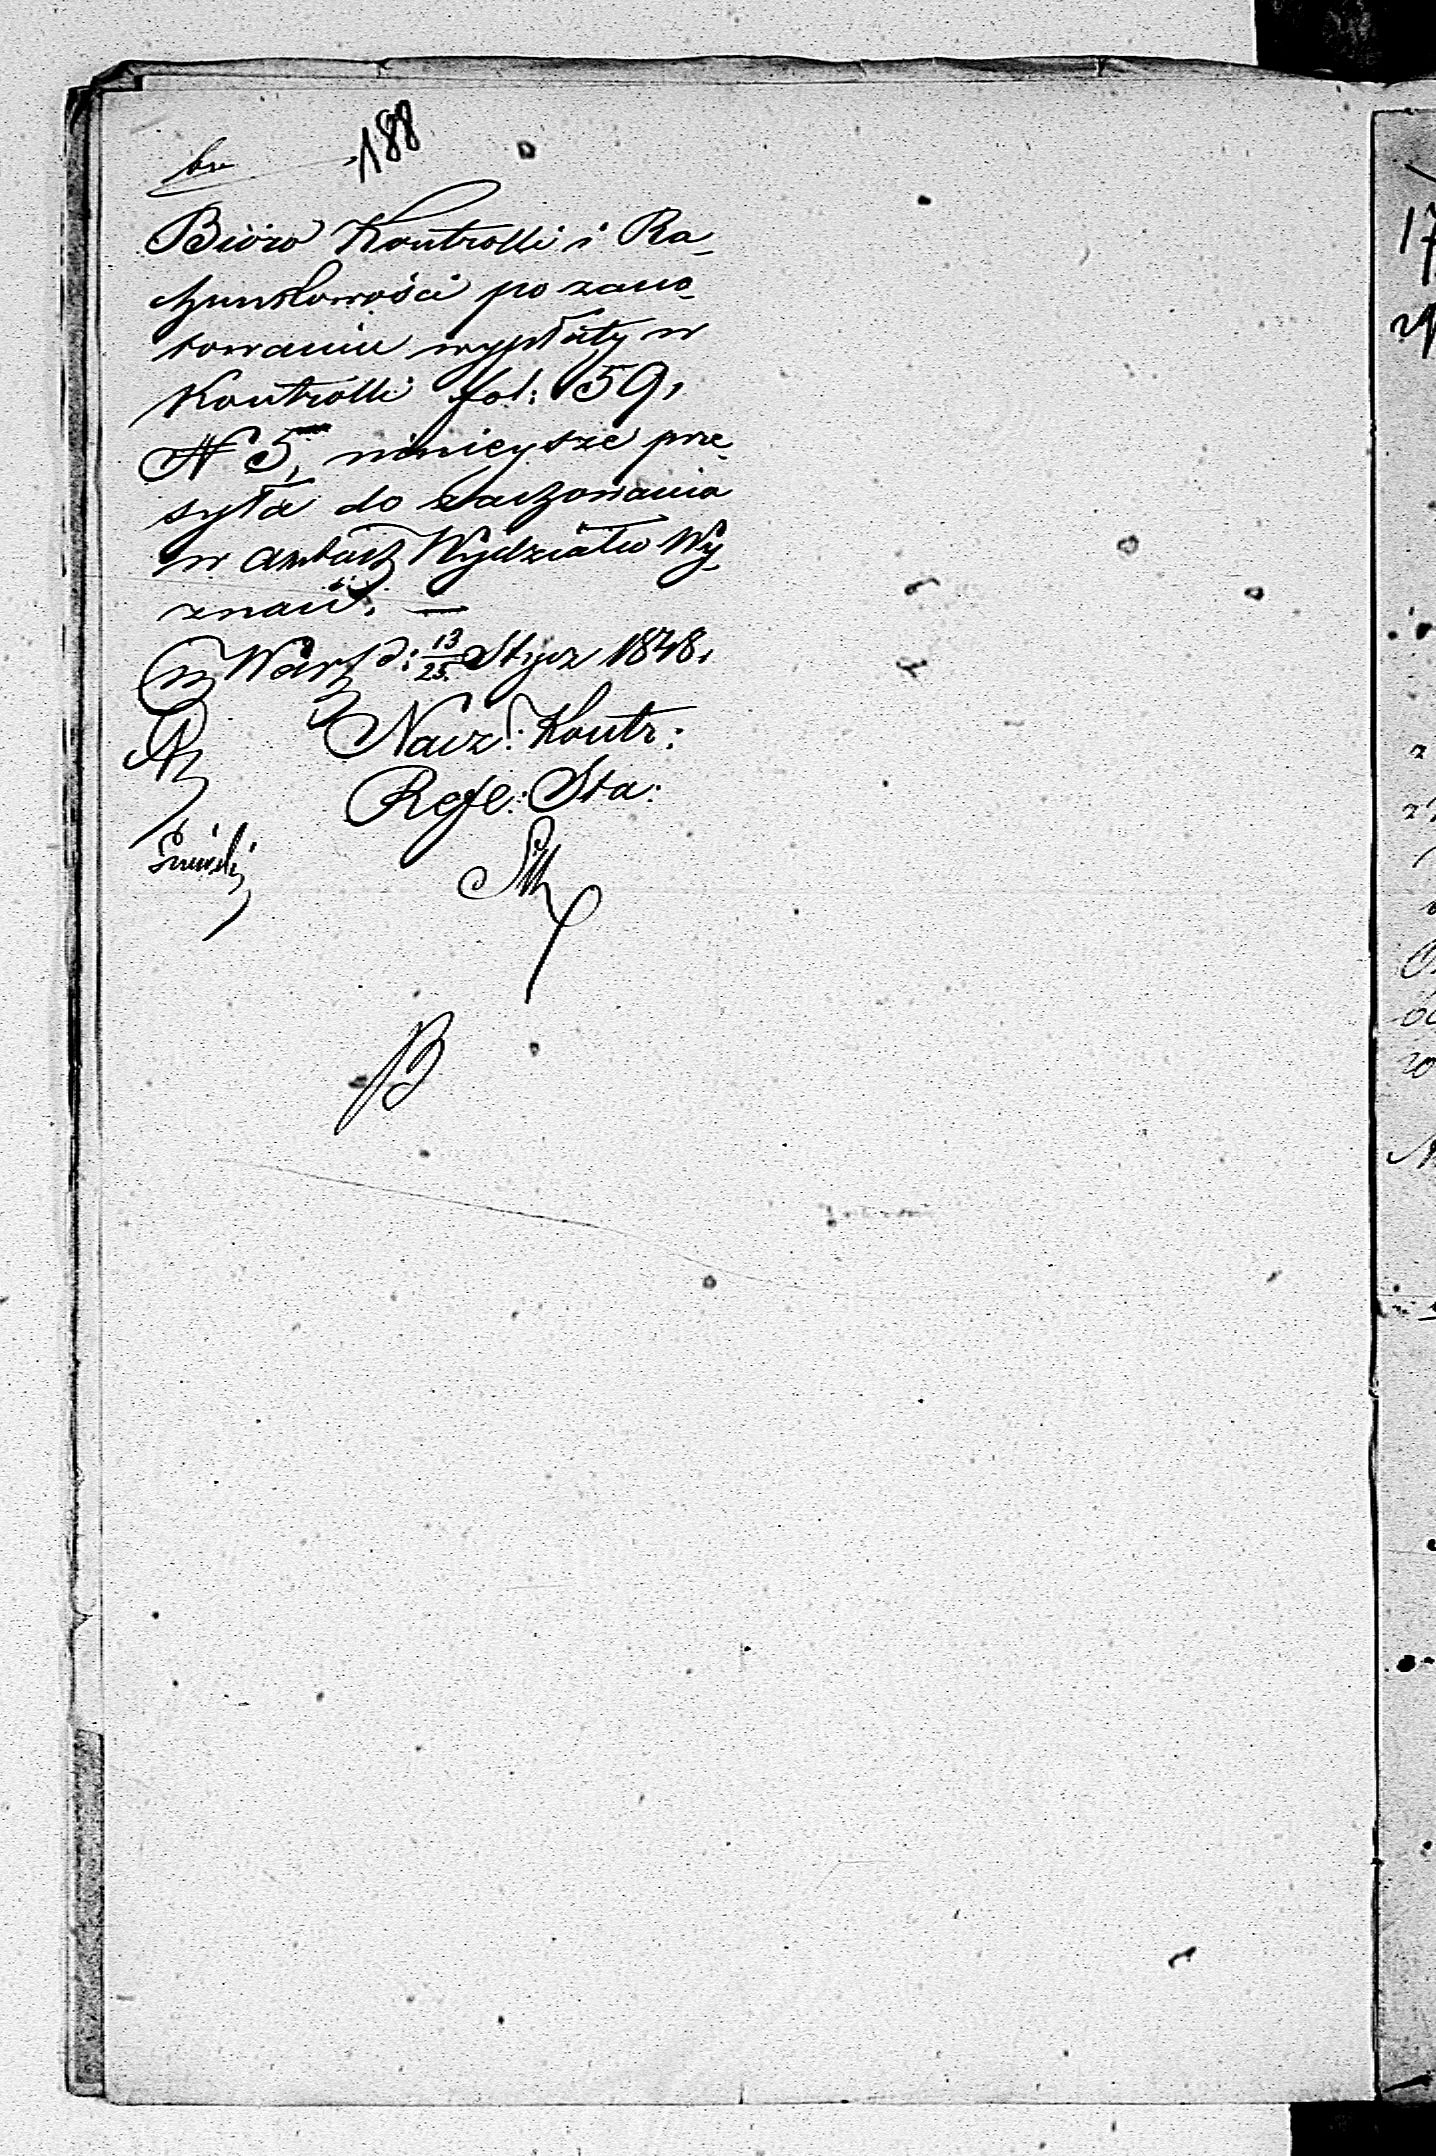 188
Bióro Kontrolli i Ra-
chunkowości po zano-
towaniu wypłaty w
Kontrolli fol: 159,
N 5, ninieysze prze-
syła do zachowania
w aktach Wydziału Wy-
znań. —
w Warsz: d: 13/25 Stycz 1848.
Nacz: Kontr:
Refe: Sta:
B